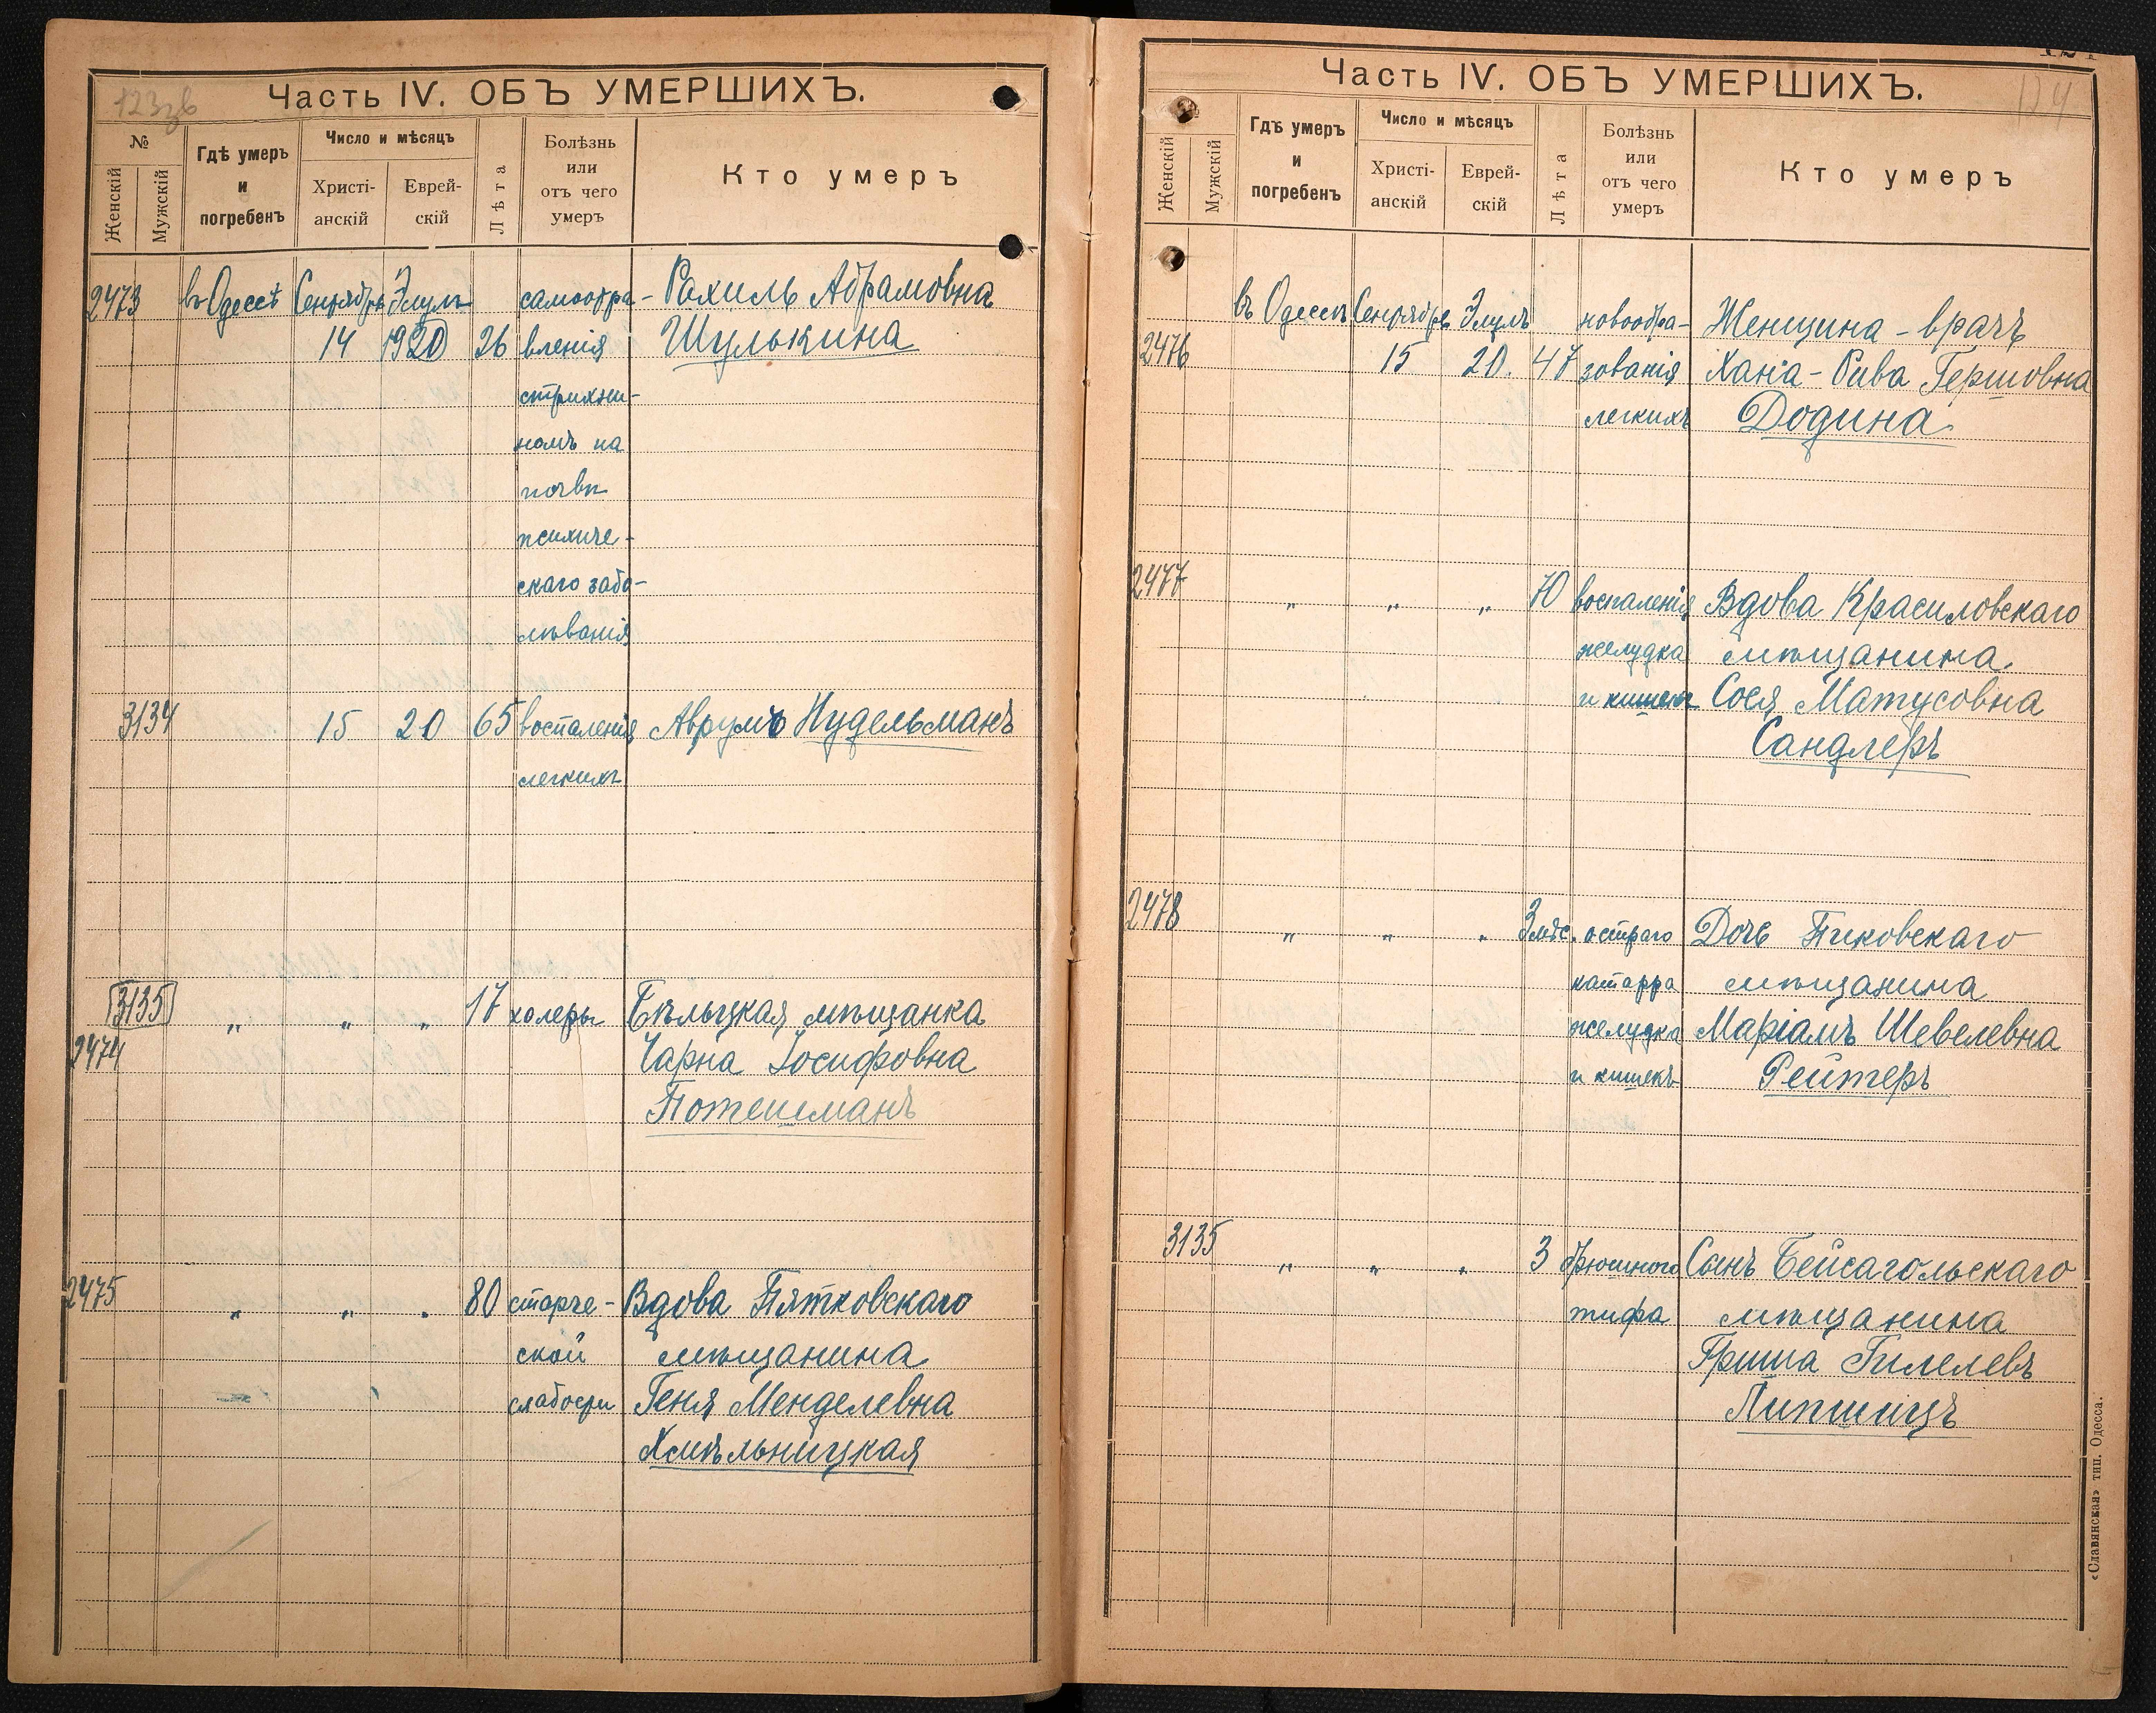 123зв
Часть IV. ОБЪ УМЕРШИХЪ.
№
Женскій
Мужскій
Гдѣ умеръ
и
погребенъ
Число и мѣсяцъ
Христі-
анскій
Еврей-
скій
Лѣта
Болѣзнь
или
отъ чего
умеръ
Кто умеръ
2473 въ Одессѣ Сентябрь Элулъ самоотра- Рахиль Абрамовна
14 1920 26 вленія Шулькина
стрихни-
номъ на
почвѣ
психиче-
скаго забо-
лѣванія
3134 15 20 65 воспаленія Аврумъ Нудельманъ
легкихъ
3135 „ „ „ 17 холеры Бѣльцкая мѣщанка
2474 Чарна Іосифовна
Потешманъ
2475 „ „ „ 80 старче- Вдова Пятковскаго
ской мѣщанина
слабости Геня Менделевна
Хмѣльницкая
124
Часть IV. ОБЪ УМЕРШИХЪ.
Женскій
Мужскій
Гдѣ умеръ
и
погребенъ
Число и мѣсяцъ
Христі-
анскій
Еврей-
скій
Лѣта
Болѣзнь
или
отъ чего
умеръ
Кто умеръ
въ Одессѣ Сентябрь Элулъ новообра- Женщина-врачъ
2476 15 20. 47 зованія Хана-Рива Гершовна
легкихъ Додина
2477 „ „ „ 70 воспаленія Вдова Красиловскаго
желудка мѣщанина
и кишекъ Сося Матусовна
Сандлеръ
2478 „ „ „ 3 мѣс. остраго Дочь Пиковскаго
катарра мѣщанина
желудка Маріамъ Шевелевна
и кишекъ Рейтеръ
3135 „ „ „ 3 брюшного Сынъ Бейсагольскаго
тифа мѣщанина
Гриша Гилелевъ
Липшицъ
«Славянская» тип. Одесса.